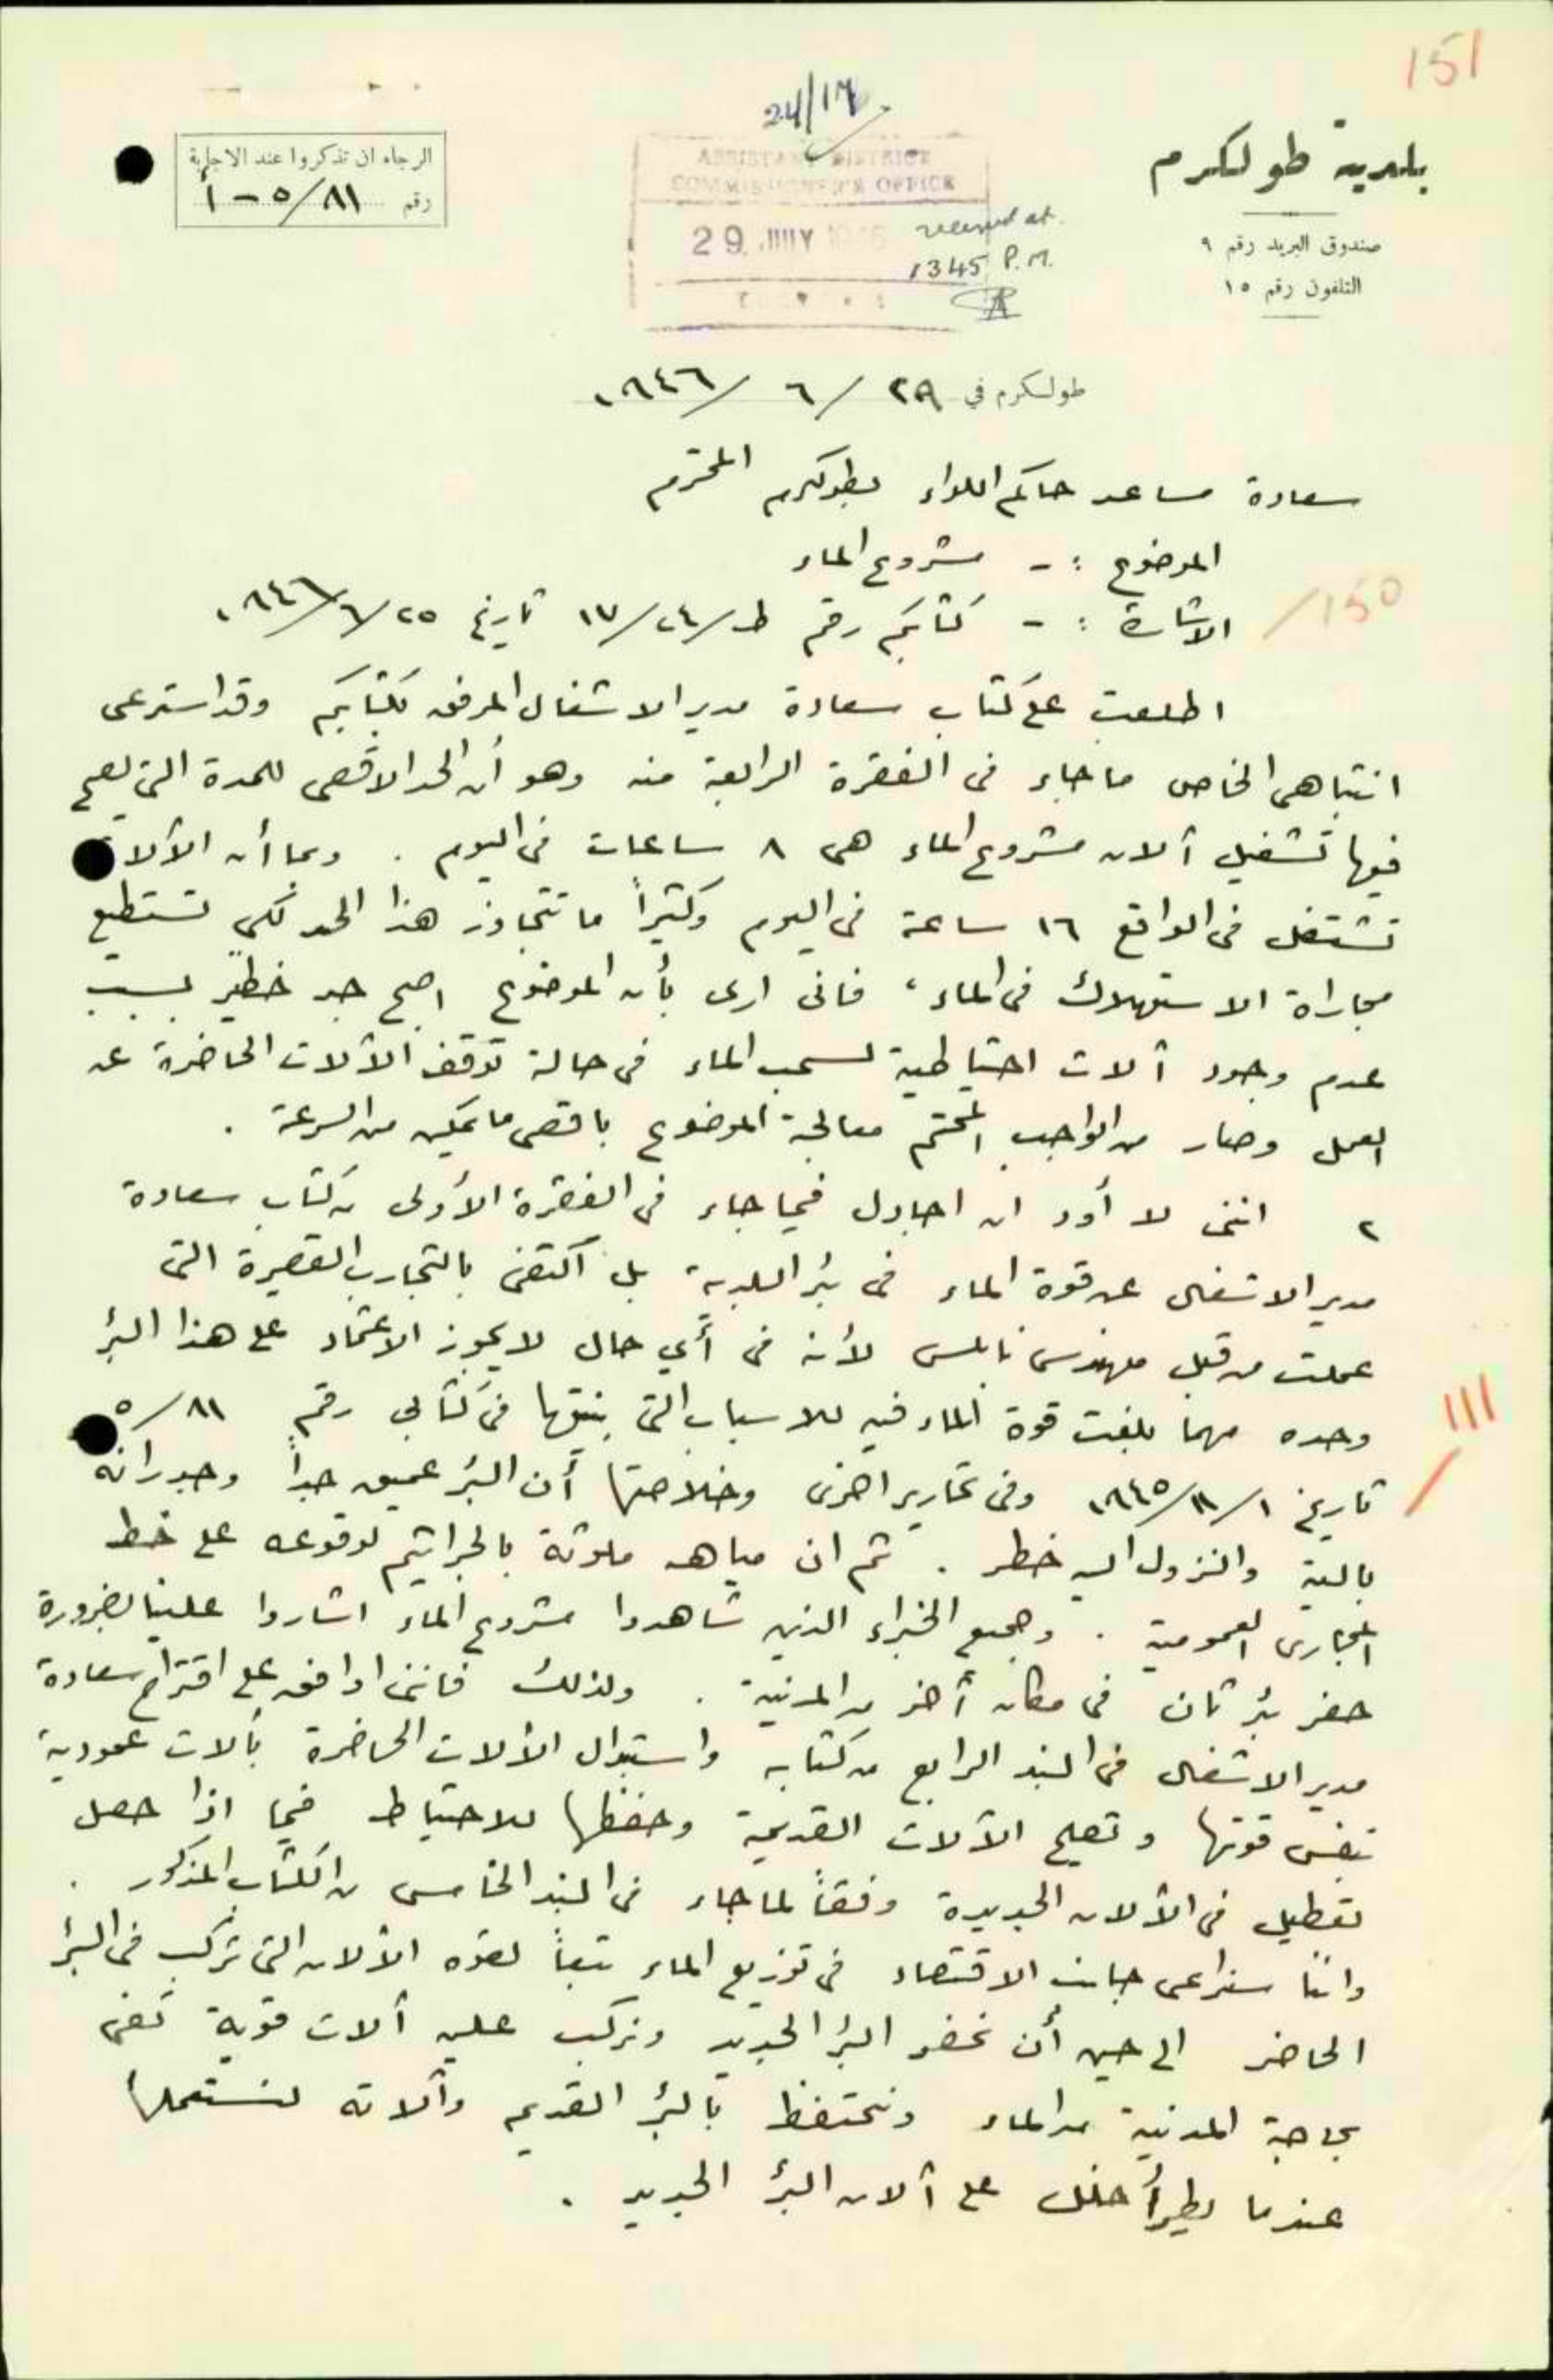 151
24/17
بلدية طولكرم
صندوق البريد رقم ٩
التلفون رقم ١٥
ASSISTANT DISTRICT
COMMISSIONER'S OFFICE
29. JULY 1946
received at
1345 P.M.
الرجاء ان تذكروا عند الاجابة
رقم ٥/٨١ - ١
طولكرم في ٢٩ / ٦ / ١٩٤٦
سعادة مساعد حاكم اللواء بطولكرم المحترم
الموضوع :- مشروع الماء
150/
الاشارة :- كتابكم رقم ط/٢٤/١٧ تاريخ ٢٥/٦/١٩٤٦
اطلعت على كتاب سعادة مدير الاشغال المرفق بكتابكم وقد استرعى
انتباهي الخاص ما جاء في الفقرة الرابعة منه وهو أن الحد الاقصى للمدة التي يصح
فيها تشغيل آلات مشروع الماء هي ٨ ساعات في اليوم . وبما أن الآلات
تشتغل في الواقع ١٦ ساعة في اليوم وكثيراً ما تتجاوز هذا الحد لكي تستطيع
مجاراة الاستهلاك في الماء، فاني ارى بأن الموضوع اصبح جد خطير بسبب
عدم وجود آلات احتياطية لسحب الماء في حالة توقف الآلات الحاضرة عن
العمل وصار من الواجب المحتم معالجة الموضوع باقصى ما يمكن من السرعة .
٢ انني لا أود ان اجادل فيما جاء في الفقرة الأولى من كتاب سعادة
مدير الاشغال عن قوة الماء في بئر البلدية بل أكتفي بالتجارب القصيرة التي
عملت من قبل مهندس نابلس لأنه في أي حال لا يجوز الاعتماد على هذا البئر
111
وحده مهما بلغت قوة الماء فيه للاسباب التي بينتها في كتابي رقم ٥/٨١
تاريخ ١/١١/١٩٤٥ وفي تحارير اخرى وخلاصتها أن البئر عميق جداً وجدرانه
بالية والنزول اليه خطر . ثم ان مياهه ملوثة بالجراثيم لوقوعه على خط
المجاري العمومية . وجميع الخبراء الذين شاهدوا مشروع الماء اشاروا علينا بضرورة
حفر بئر ثان في مكان آخر من المدينة . ولذلك فانني اوافق على اقتراح سعادة
مدير الاشغال في البند الرابع من كتابه واستبدال الآلات الحاضرة بآلات عمودية
بنفس قوتها وتصليح الآلات القديمة وحفظها للاحتياط فيما اذا حصل
تعطيل في الآلات الجديدة وفقاً لما جاء في البند الخامس من الكتاب المذكور .
واننا سنراعي جانب الاقتصاد في توزيع الماء تبعاً لقوة الآلات التي تركب في البئر
الحاضر الى حين أن نحفر البئر الجديد ونركب عليه آلات قوية تفي
بحاجة المدينة من الماء ونحتفظ بالبئر القديم وآلاته لنستعملها
عندما يطرأ خلل على آلات البئر الجديد .